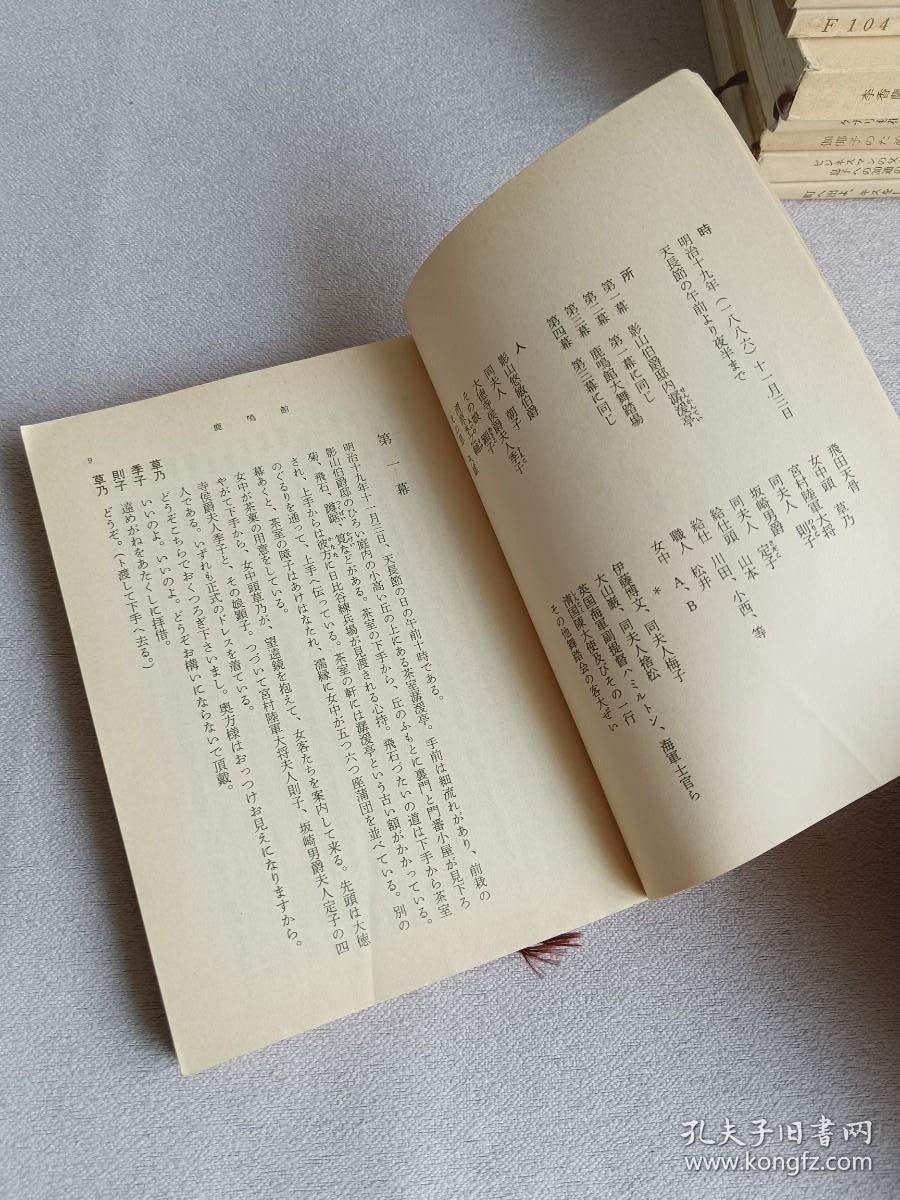 時
明治十九年(一八八六)十一月三日
天長節の午前より夜半まで
所
第一幕 影山伯爵邸内潺湲亭
第二幕 第一幕に同じ
第三幕 鹿鳴館大舞踏場
第四幕 第三幕に同じ
人
影山悠敏伯爵
同夫人 朝子
大徳寺侯爵夫人季子
その娘 顕子
飛田天骨
女中頭 草乃
宮村陸軍大将
同夫人 則子
坂崎男爵
同夫人 定子
給仕頭 山本
給仕 川田、小西、等
職人 松井
女中 A、B
*
伊藤博文、同夫人梅子
大山巌、同夫人捨松
英国海軍副提督ハミルトン、海軍士官ら
清国陳大使及びその一行
その他舞踏会の客大ぜい
鹿鳴館
9
第一幕
明治十九年十一月三日、天長節の日の午前十時である。
影山伯爵邸のひろい庭内の小高い丘の上にある茶室潺湲亭。手前は細流れがあり、前栽の
菊、飛石、蹲踞、筧などがある。茶室の下手から、丘のふもとに裏門と門番小屋が見下ろ
され、上手からは彼方に日比谷練兵場が見渡される心持。飛石づたいの道は下手から茶室
のぐるりを通って、上手へ伝っている。茶室の軒には潺湲亭という古い額がかかっている。
幕あくと、茶室の障子はあけはなたれ、濡縁に女中が五つ六つ座蒲団を並べている。別の
女中が茶菓の用意をしている。
やがて下手から、女中頭草乃が、望遠鏡を抱えて、女客たちを案内して来る。先頭は大徳
寺侯爵夫人季子と、その娘顕子。つづいて宮村陸軍大将夫人則子、坂崎男爵夫人定子の四
人である。いずれも正式のドレスを着ている。
草乃 どうぞこちらでおくつろぎ下さいまし。奥方様はおっつけお見えになりますから。
季子 いいのよ。いいのよ。どうぞお構いにならないで頂戴。
則子 遠めがねをあたくしに拝借。
草乃 どうぞ。(ト渡して下手へ去る。)
F 104
李香蘭
ビジネスマンの父
孔夫子旧书网
www.kongfz.com